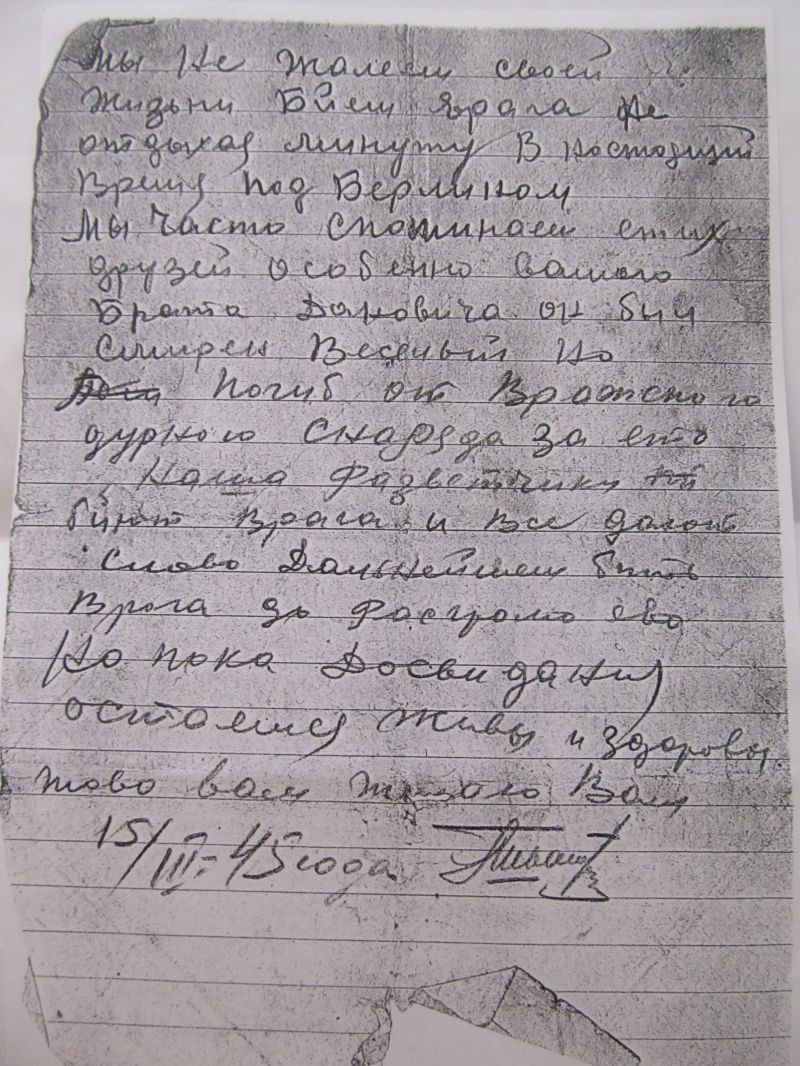 Мы не жалеем своей
жизьни Бйем врага не
отдыхая минуту В ностоящий
Время под Берлином
Мы часто спомлинаем етих
друзей особенно вашего
Брата Дановича он был
смирен Веселый но
погиб от Вражеского
дурного снаряда за ето
Наша разветчики
бйют врага и все дают
слово Дальнейшем бить
Врага до розгрома ево
Но пока Досвидания
остаемся живы и здоровы
тово вам желаю Вам
15/III-45 года